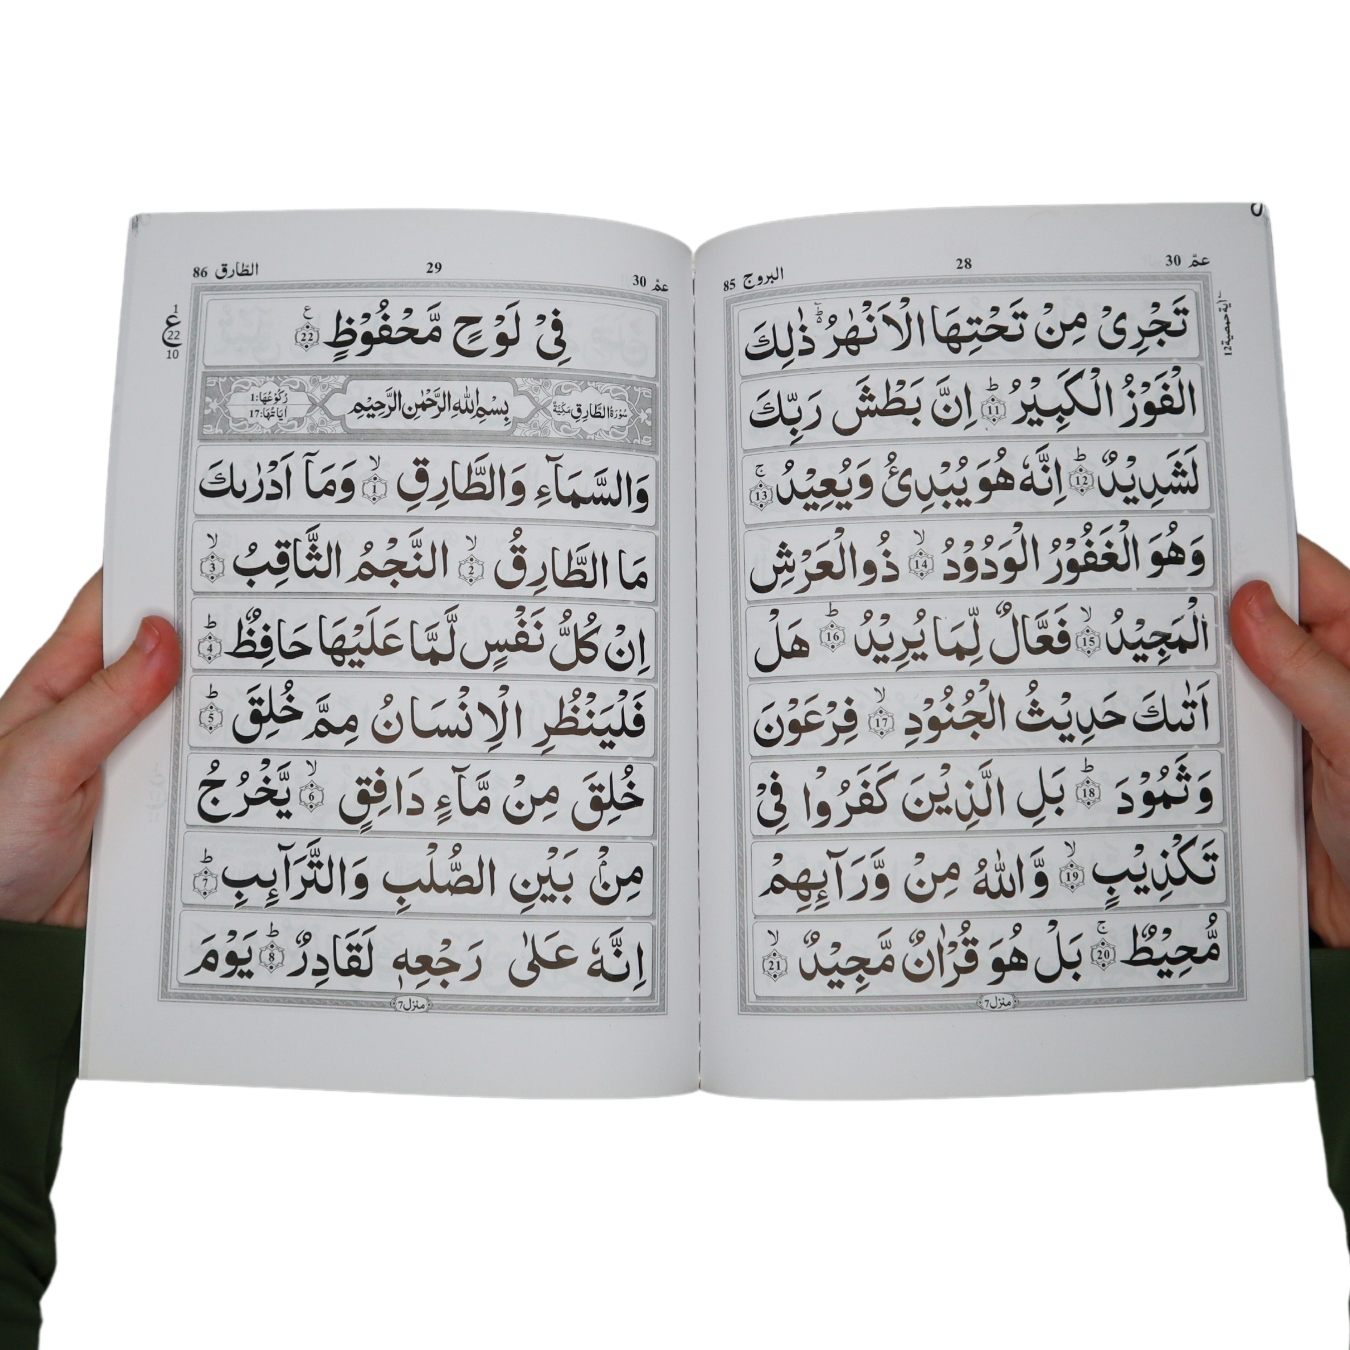 عمّ 30
28
البروج 85
تَجْرِىْ مِنْ تَحْتِهَا الْاَنْهٰرُ ؕ ذٰلِكَ
الْفَوْزُ الْكَبِيْرُ ؕ 11 اِنَّ بَطْشَ رَبِّكَ
لَشَدِيْدٌ ؕ 12 اِنَّهٗ هُوَ يُبْدِئُ وَيُعِيْدُ ۚ 13
وَهُوَ الْغَفُوْرُ الْوَدُوْدُ ۙ 14 ذُو الْعَرْشِ
الْمَجِيْدُ ۙ 15 فَعَّالٌ لِّمَا يُرِيْدُ ؕ 16 هَلْ
اَتٰىكَ حَدِيْثُ الْجُنُوْدِ ۙ 17 فِرْعَوْنَ
وَثَمُوْدَ ؕ 18 بَلِ الَّذِيْنَ كَفَرُوْا فِىْ
تَكْذِيْبٍ ۙ 19 وَّاللّٰهُ مِنْ وَّرَآئِهِمْ
مُّحِيْطٌ ۚ 20 بَلْ هُوَ قُرْاٰنٌ مَّجِيْدٌ ۙ 21
منزل 7
عمّ 30
29
الطّارق 86
1
ع
22
10
فِىْ لَوْحٍ مَّحْفُوْظٍ ع 22
سُوْرَةُ الطَّارِقِ مَكِّيَّةٌ
بِسْمِ اللّٰهِ الرَّحْمٰنِ الرَّحِيْمِ
رُكُوْعُهَا: 1
اٰيَاتُهَا: 17
وَالسَّمَآءِ وَالطَّارِقِ ۙ 1 وَمَاۤ اَدْرٰىكَ
مَا الطَّارِقُ ۙ 2 النَّجْمُ الثَّاقِبُ ۙ 3
اِنْ كُلُّ نَفْسٍ لَّمَّا عَلَيْهَا حَافِظٌ ؕ 4
فَلْيَنْظُرِ الْاِنْسَانُ مِمَّ خُلِقَ ؕ 5
خُلِقَ مِنْ مَّآءٍ دَافِقٍ ۙ 6 يَّخْرُجُ
مِنْۢ بَيْنِ الصُّلْبِ وَالتَّرَآئِبِ ؕ 7
اِنَّهٗ عَلٰى رَجْعِهٖ لَقَادِرٌ ؕ 8 يَوْمَ
منزل 7